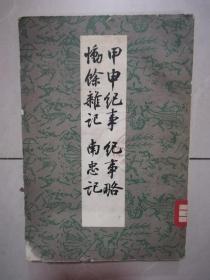 甲申纪事 纪事略
恸餘雜记 南忠记